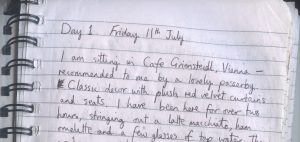 Day 1 Friday 11th July
I am sitting in Cafe Griensteidl, Vienna –
recommended to me by a lovely passerby.
Classic decor with plush red velvet curtains
and seats. I have been here for over two
hours, stringing out a latte macchiato, ham
omelette and a few glasses of tap water. The